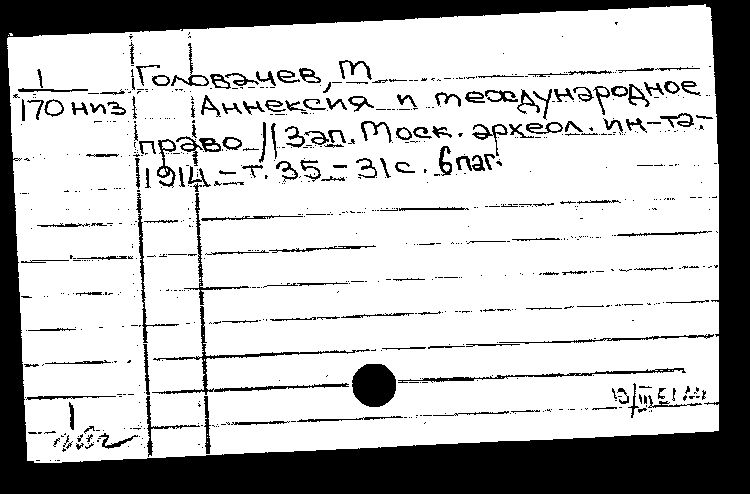 1
170 низ
Головачев, М
Аннексия и международное
право // Зап. Моск. археол. ин-та.-
1914.-т. 35.-31 с. 6 паг.
1